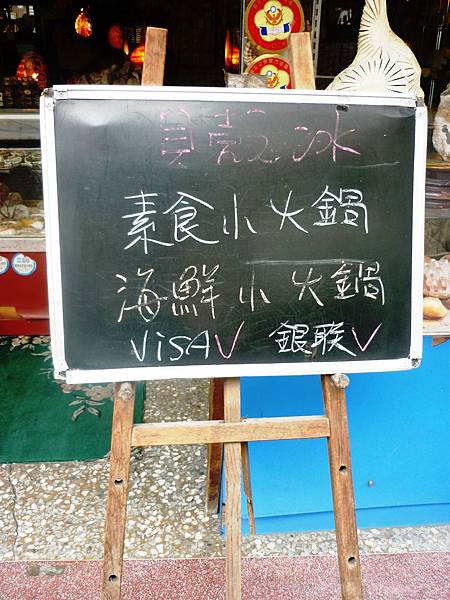 貝殼冰
素食小火鍋
海鮮小火鍋
VISA V 銀联 V